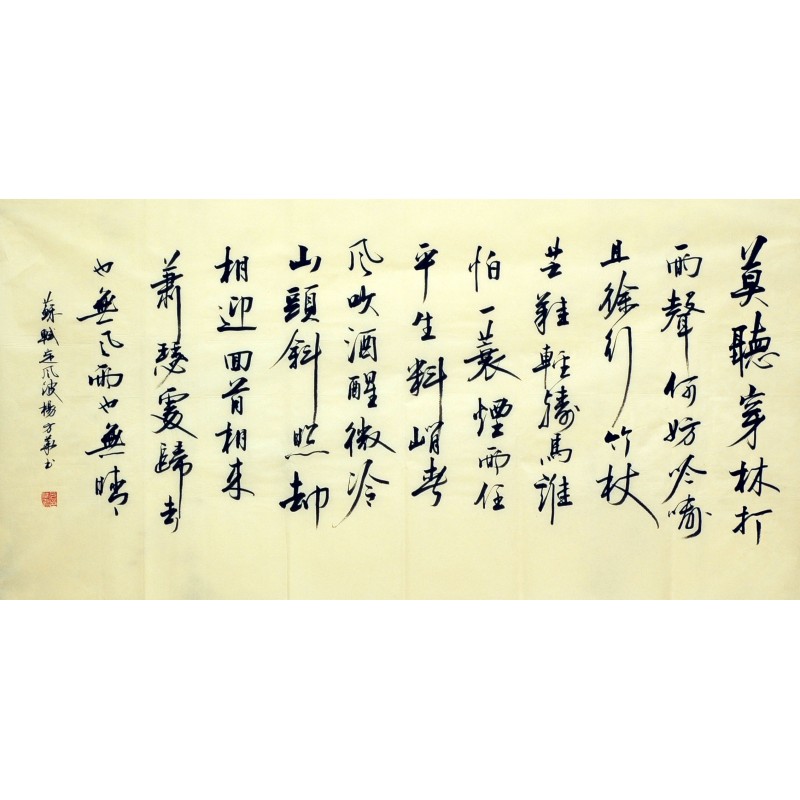 莫聽穿林打
雨聲何妨吟嘯
且徐行竹杖
芒鞋輕勝馬誰
怕一蓑煙雨任
平生料峭春
风吹酒醒微冷
山頭斜照却
相迎回首相来
蕭瑟處歸去
也無风雨也無晴
蘇軾定风波楊方书